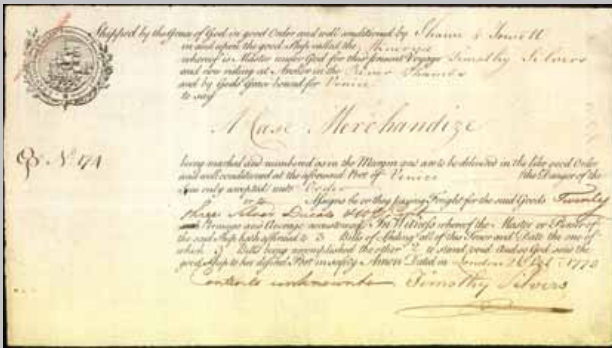 Shipped by the Grace of God in good Order and well conditioned by
in and upon the good Ship called the Minerva
whereof is Master under God for this present Voyage Timothy Silvers
and now riding at Anchor in the River Thames
and by Gods Grace bound for Venice
to say
A Case Merchandize
No. 174
being marked and numbered as in the Margin and are to be delivered in the like good Order
and well conditioned at the aforesaid Port of Venice the Danger of the
Seas only excepted unto Order
or to Assigns he or they paying Freight for the said Goods Twenty
three Silver Ducats
and Average accustomed In Witness whereof the Master or Purser of
the said Ship hath affirmed to 3 Bills of Lading all of this Tenor and Date the one of
which 3 Bills being accomplished the other 2 to stand void And so God send the
good Ship to her desired Port in safety Amen Dated in London
Contents unknown Timothy Silvers